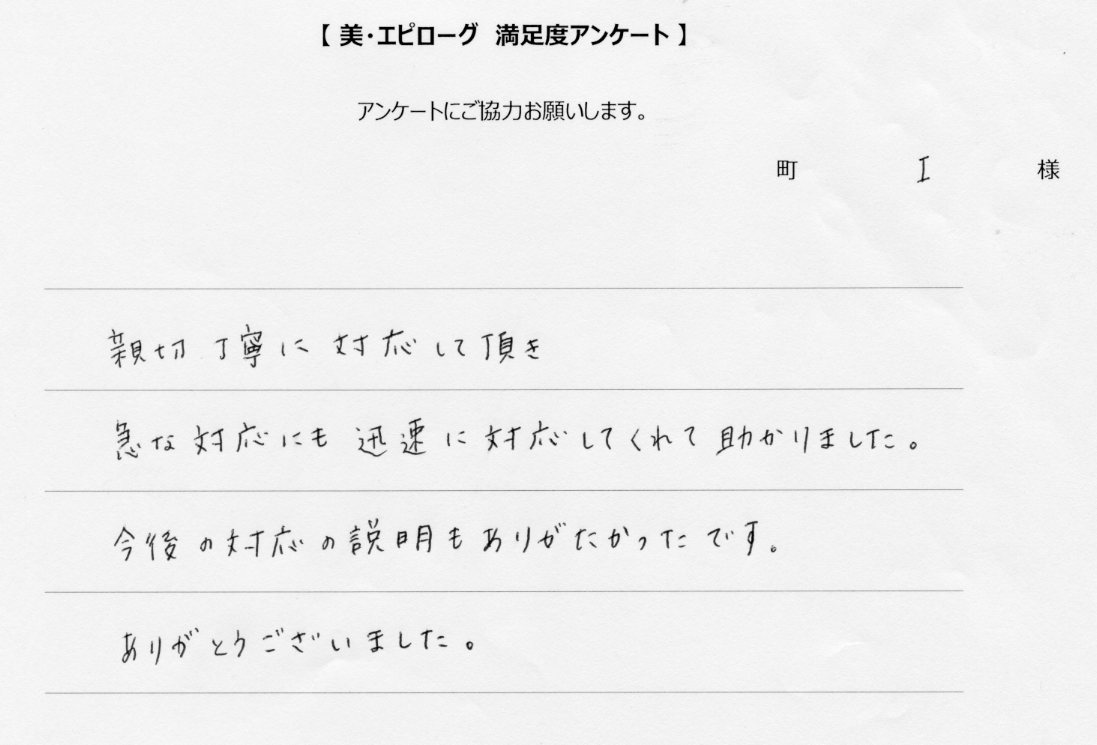 【 美・エピローグ 満足度アンケート 】
アンケートにご協力お願いします。
町 I 様
親切丁寧に対応して頂き
急な対応にも迅速に対応してくれて助かりました。
今後の対応の説明もありがたかったです。
ありがとうございました。